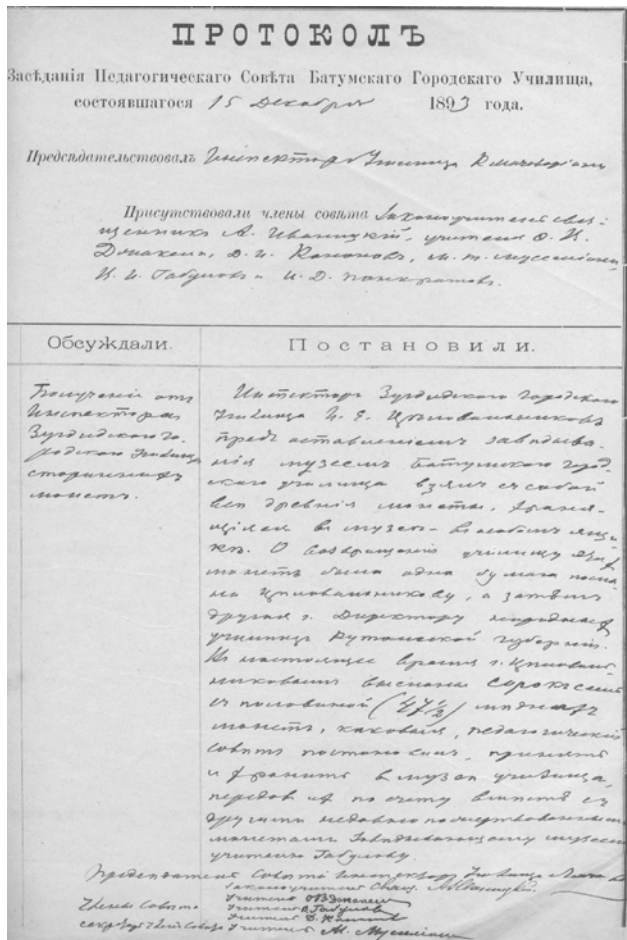 ПРОТОКОЛЪ
Засѣданія Педагогическаго Совѣта Батумскаго Городскаго Училища,
состоявшагося 15 Декабря 1893 года.
Предсѣдательствовалъ Инспекторъ Училища
Присутствовали члены совѣта Законоучитель свя-
щенникъ А. Иваницкій, учителя
Д. И. Кононовъ,
И. И. Габуловъ и И. Д. Панкратовъ.
Обсуждали.
Постановили.
Полученіе отъ
Инспектора
Зугдидскаго Го-
родского Училища
старинныхъ
монетъ.
Инспекторъ Зугдидскаго Городского
Училища И. Е. Цѣловальниковъ
предъ оставленіемъ завѣдыва-
нія музеемъ Батумскаго город-
ского училища взялъ съ собой
всѣ древнія монеты, храня-
щіяся въ музеѣ въ особомъ ящи-
кѣ. О возвращеніи училищу
монетъ была одна бумага посла-
на Цѣловальникову, а затѣмъ
другая г. Директору народныхъ
училищъ Кутаисской губерніи.
Въ настоящее время г. Цѣловаль-
никовымъ высланы сорокъ семь
съ половиной (47½) мѣдныхъ
монетъ, каковыя, педагогическій
совѣтъ постановилъ, принять
и хранить въ музеѣ училища,
передавъ по счету вмѣстѣ съ
другими недавно пожертвованными
монетами Завѣдывающему музеемъ
учителю Габулову.
Предсѣдатель Совѣта Инспекторъ Училища
Законоучитель Свящ. А. Иваницкій.
Члены Совѣта Учитель
Учитель Габуловъ
Учитель Д. Кононовъ
Секретарь Совѣта Учитель М.